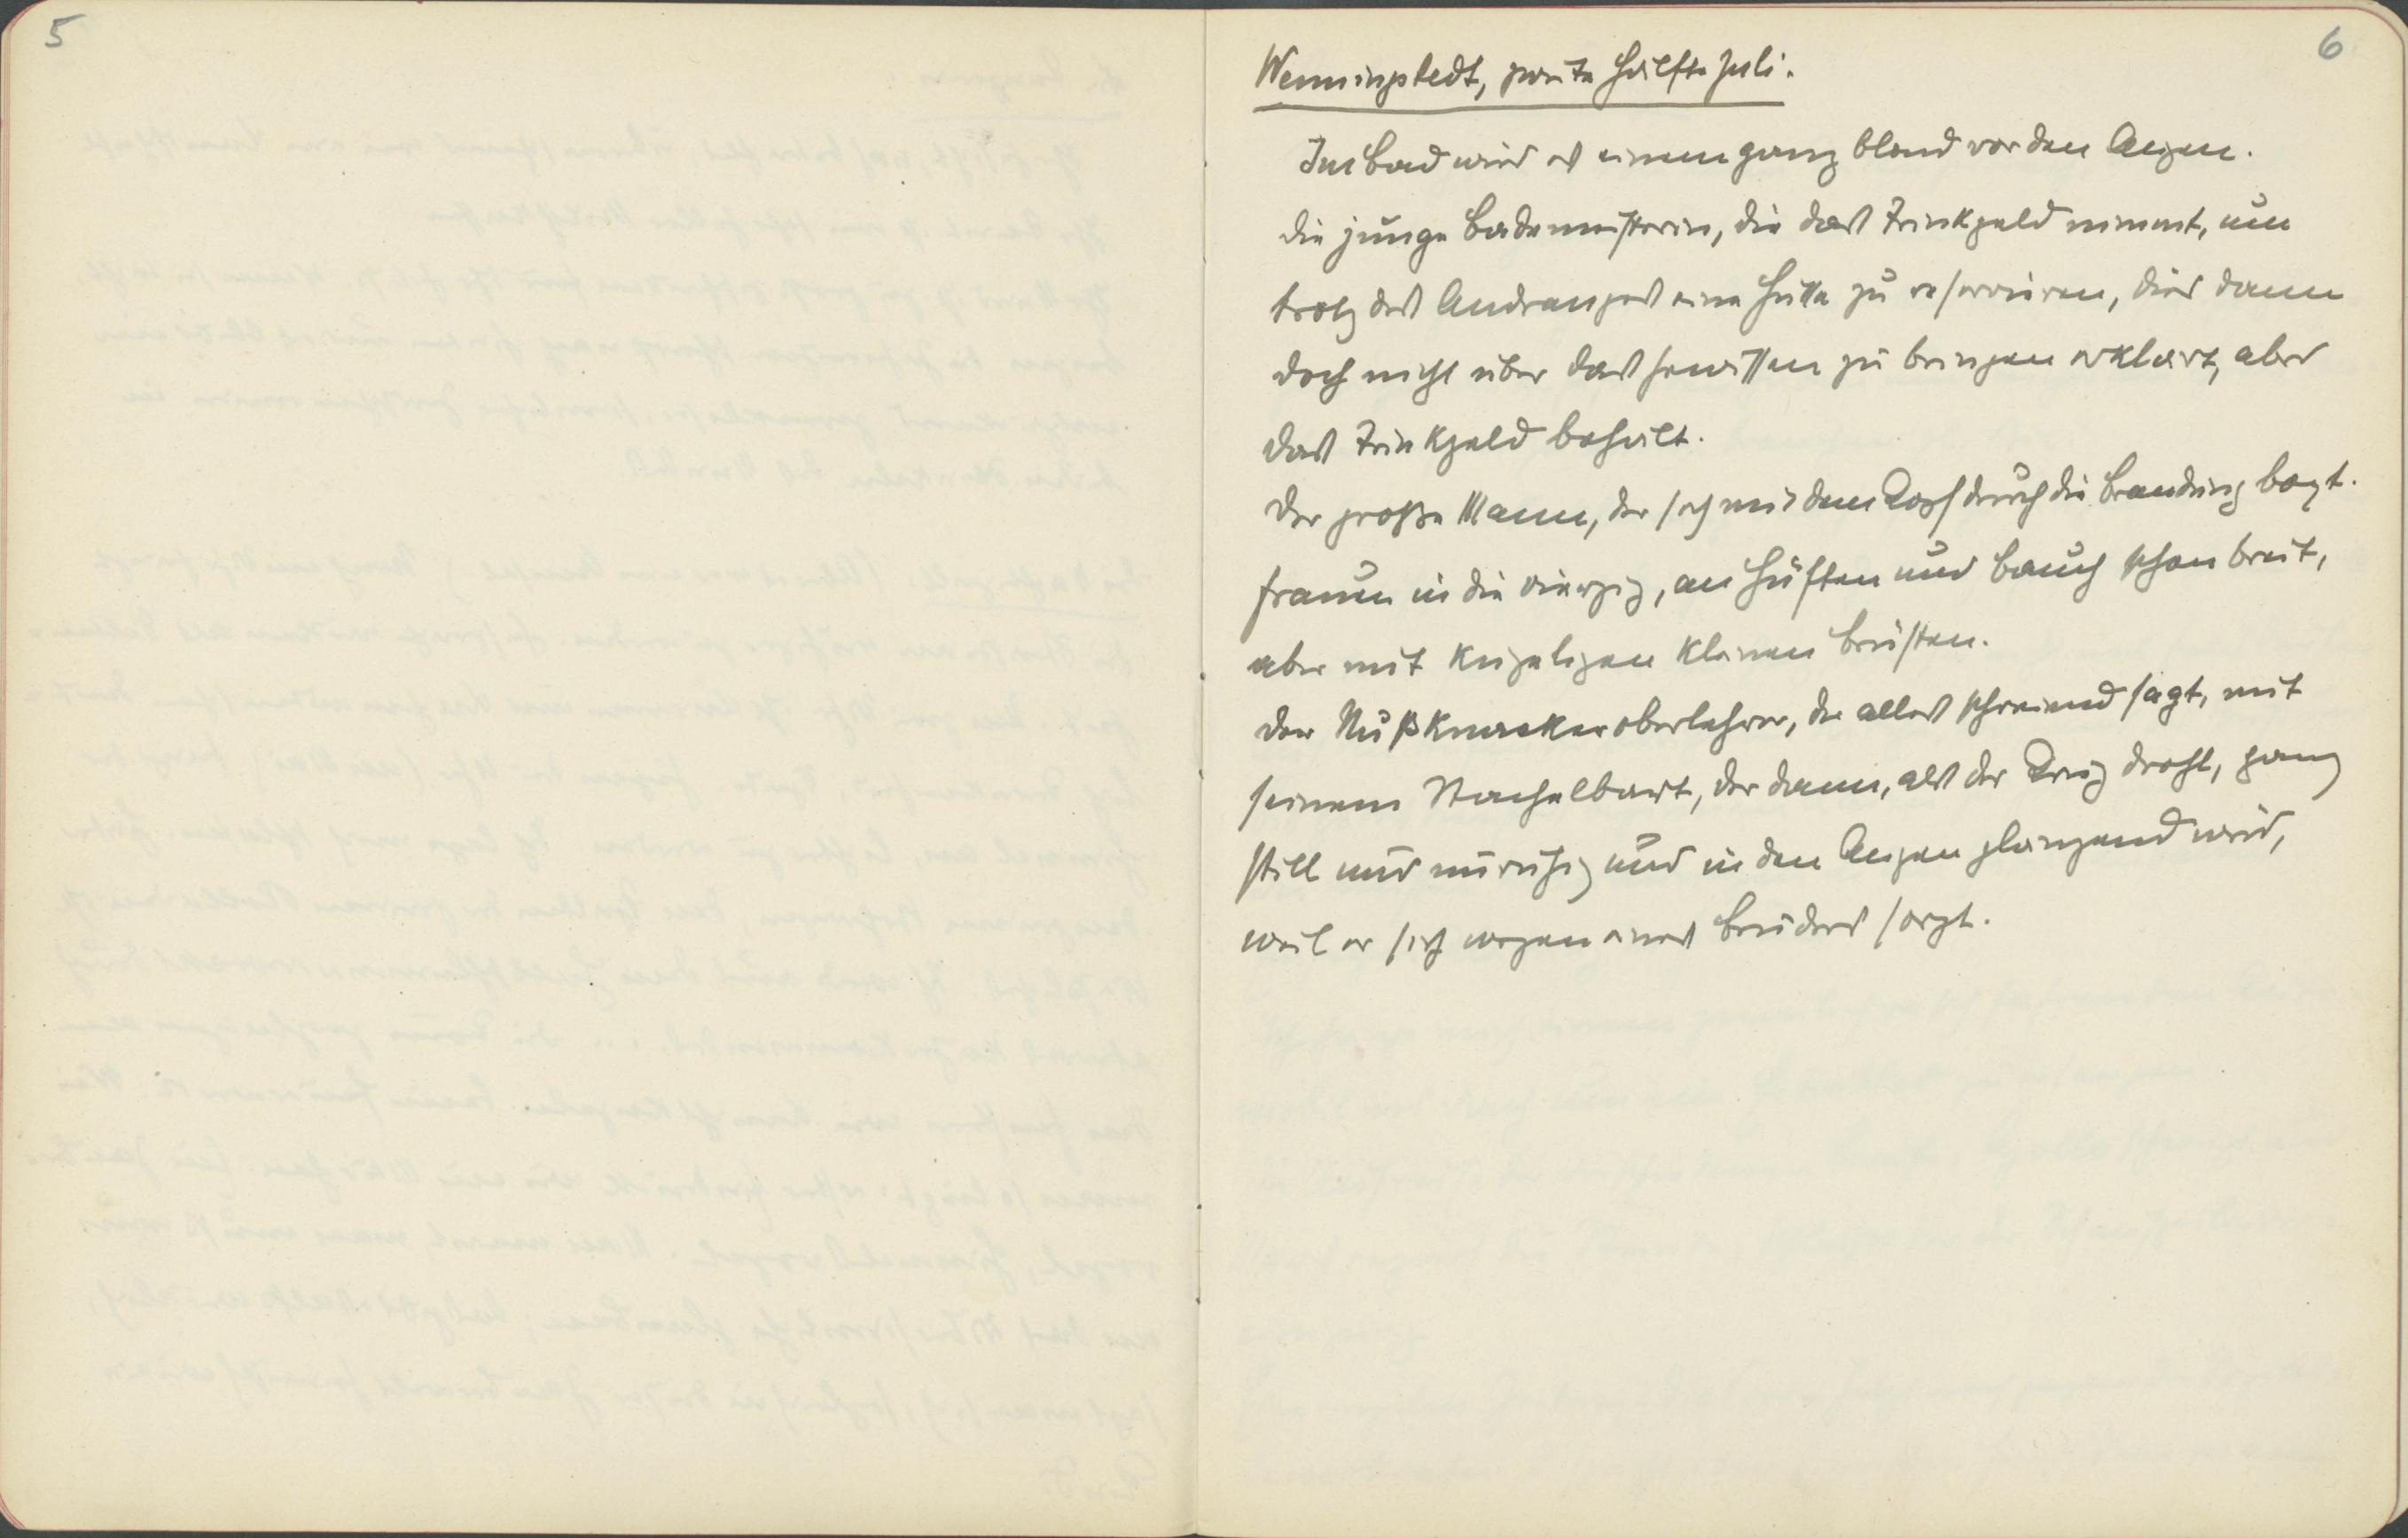 5
6
Wenningstedt, zweite Hälfte Juli.
Im Bad wird es einem ganz blond vor den Augen.
Die junge Bademeisterin, die das Trinkgeld nimmt, um
trotz des Andranges eine Hütte zu reserviren, dies dann
doch nicht über das Gewissen zu bringen erklärt, aber
das Trinkgeld behält.
Der große Mann, der sich mit dem Kopf durch die Brandung boxt.
Frauen in die vierzig, an Hüften und Bauch schon breit,
aber mit kugeligen kleinen Brüsten.
Der Nußknackeroberlehrer, der alles schreiend sagt, mit
seinem Stachelbart, der dann, als der Krieg droht, ganz
still und unruhig und in den Augen glänzend wird,
weil er sich wegen eines Bruders sorgt.